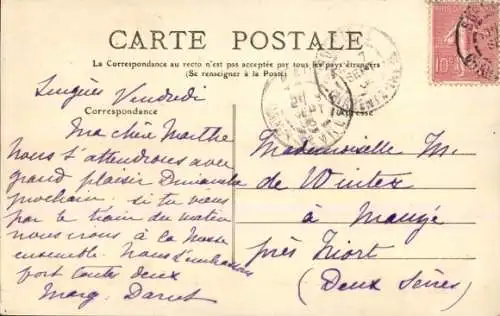 CARTE POSTALE
La Correspondance au recto n'est pas acceptée par tous les pays étrangers
(Se renseigner à la Poste)
Vendredi
Correspondance
Adresse
Ma chère Marthe
Nous t'attendrons avec
grand plaisir Dimanche
prochain. si tu viens
par le train du matin
nous irons à la Messe
ensemble. Nous t'embrassons
fort toutes deux
Marg.
Mademoiselle M.
de Winter
à Mauzé
près Niort
(Deux Sèvres)
10